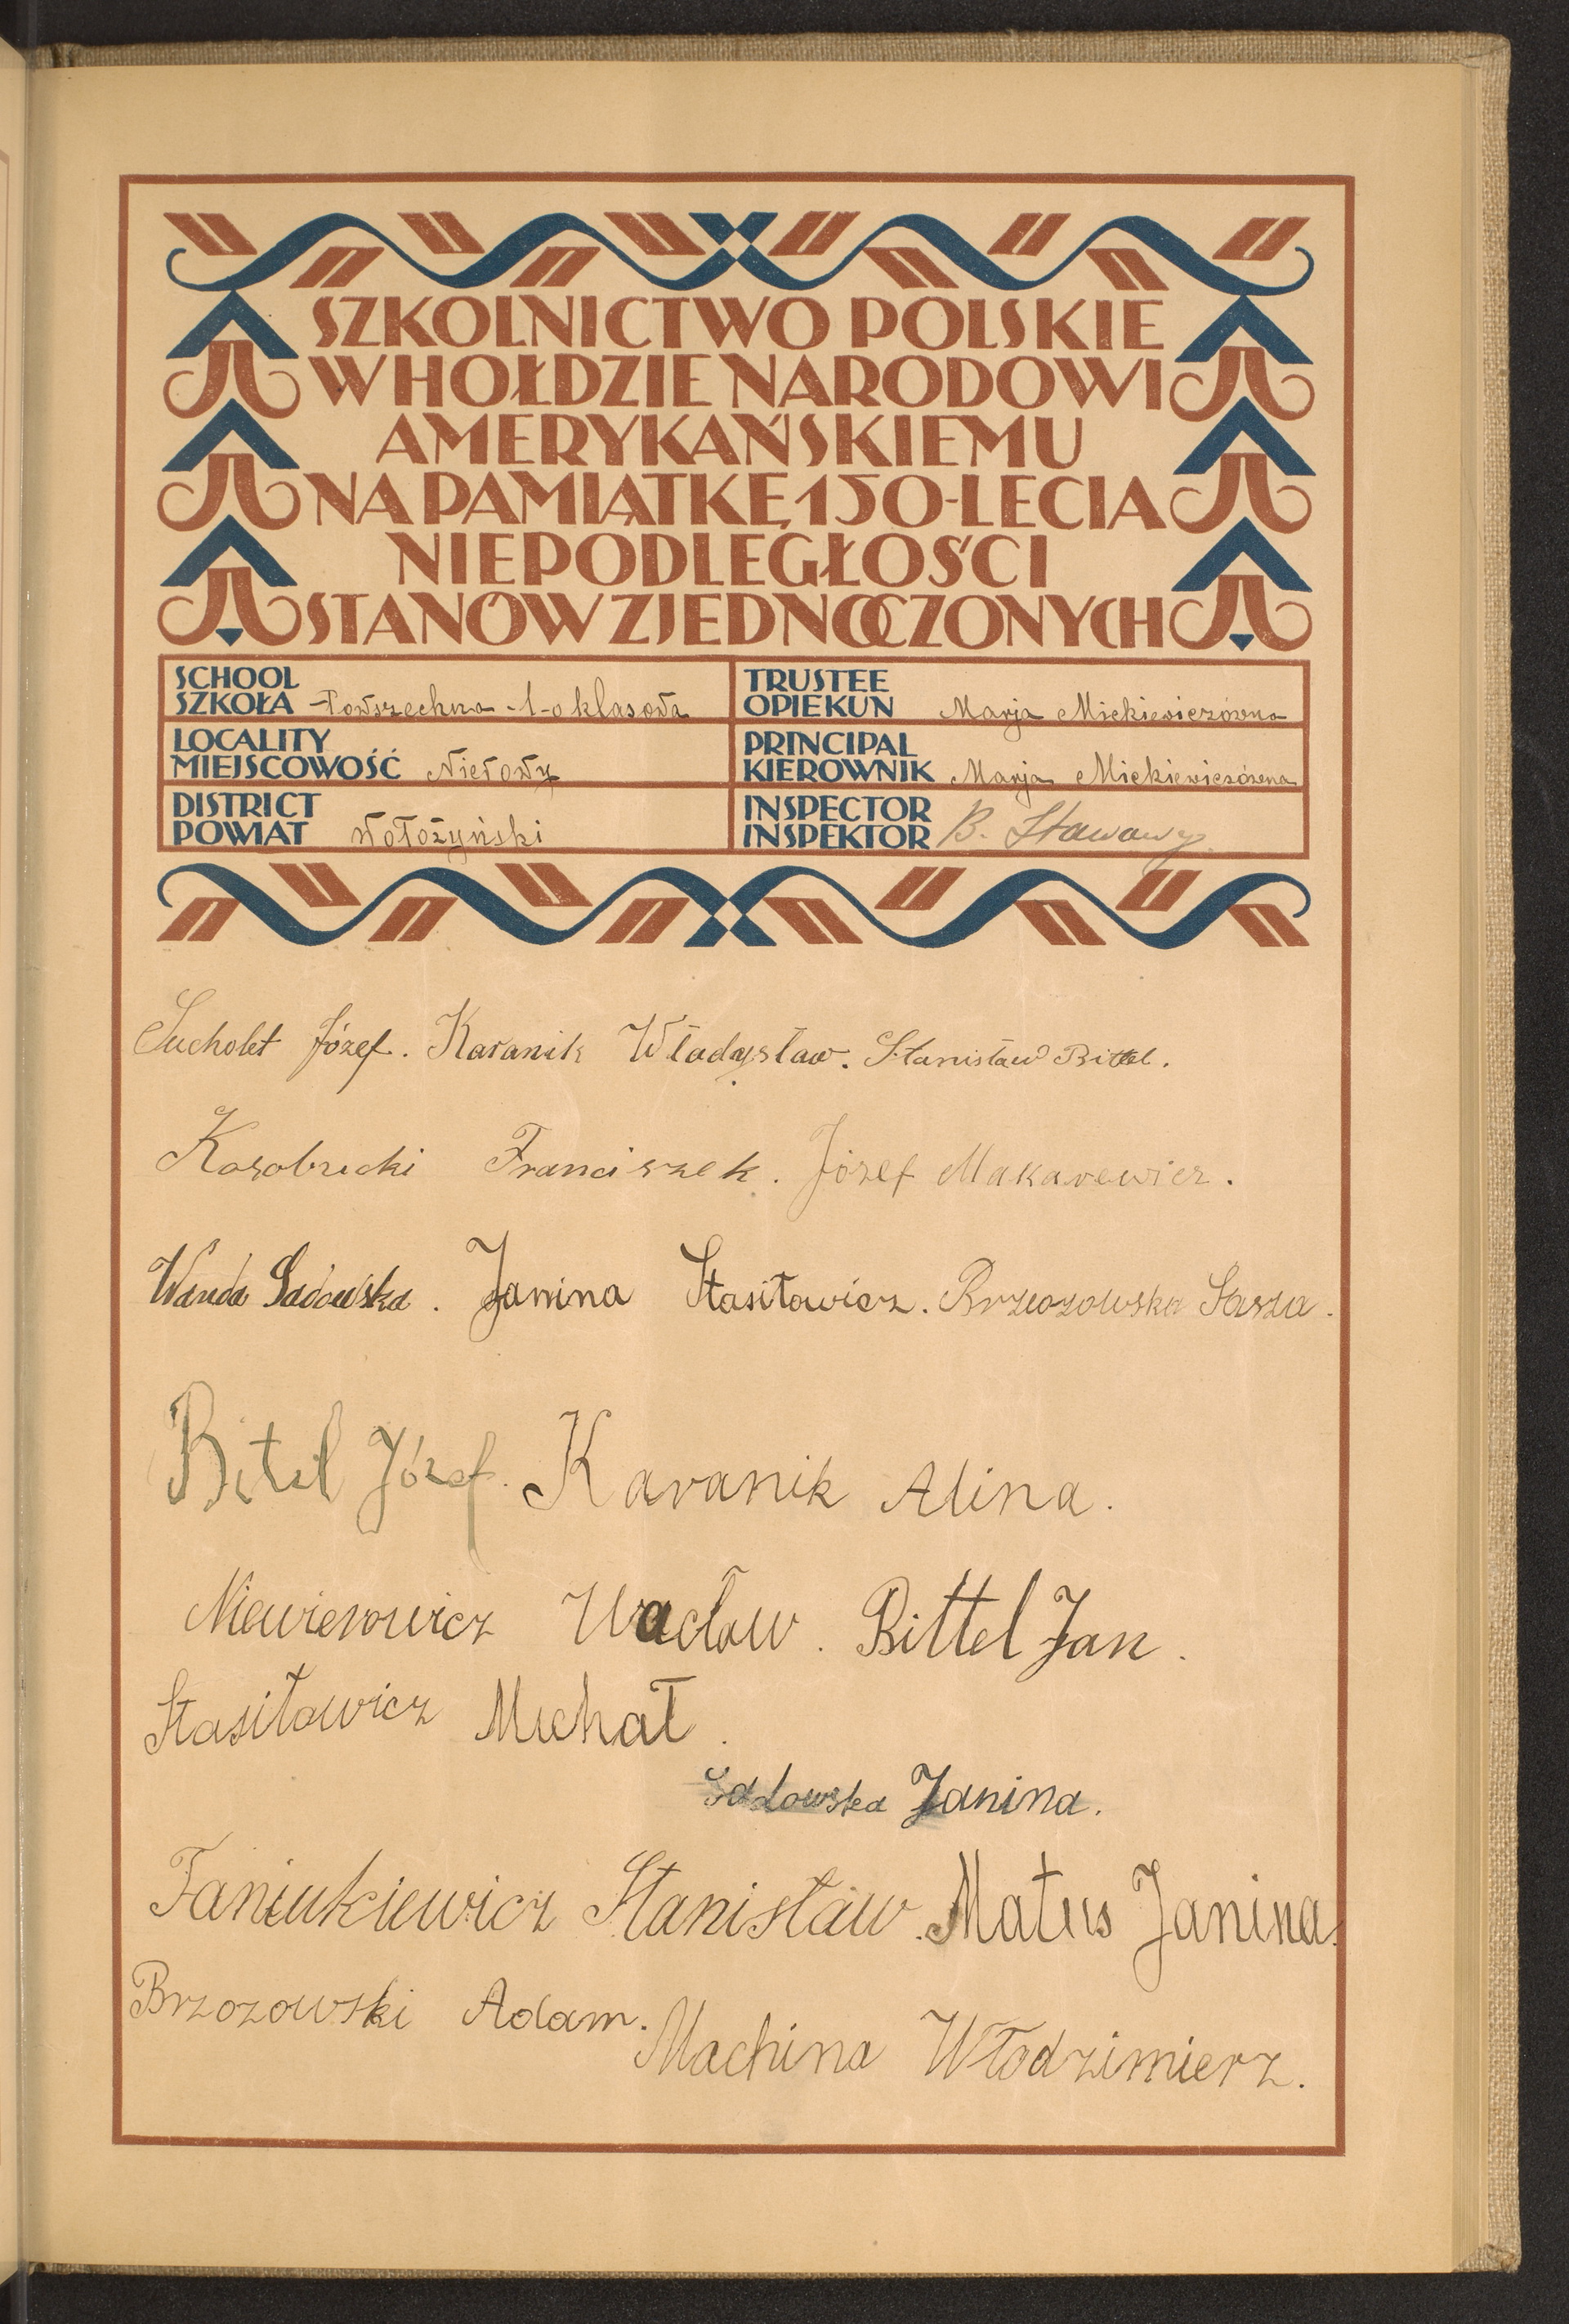 SZKOLNICTWO POLSKIE
W HOŁDZIE NARODOWI
AMERYKAŃSKIEMU
NA PAMIĄTKĘ 150-LECIA
NIEPODLEGŁOŚCI
STANÓW ZJEDNOCZONYCH
SCHOOL
SZKOŁA Powszechna -1-o klasowa
TRUSTEE
OPIEKUN Marja Mickiewiczówna
LOCALITY
MIEJSCOWOŚĆ
PRINCIPAL
KIEROWNIK Marja Mickiewiczówna
DISTRICT
POWIAT Wołożyński
INSPECTOR
INSPEKTOR B. Stawawy
Sucholet Józef. Karanik Władysław. Stanisław Bittel.
Kosobucki Franciszek. Józef Makarewicz.
Wanda Sadowska. Janina Stasiłowicz. Brzozowska Stasza.
Bitel Józef. Karanik Alina.
Niewierowicz Wacław. Bittel Jan.
Stasiłowicz Michał.
Sadowska Janina.
Faniukiewicz Stanisław. Matus Janina.
Brzozowski Adam.
Machina Włodzimierz.